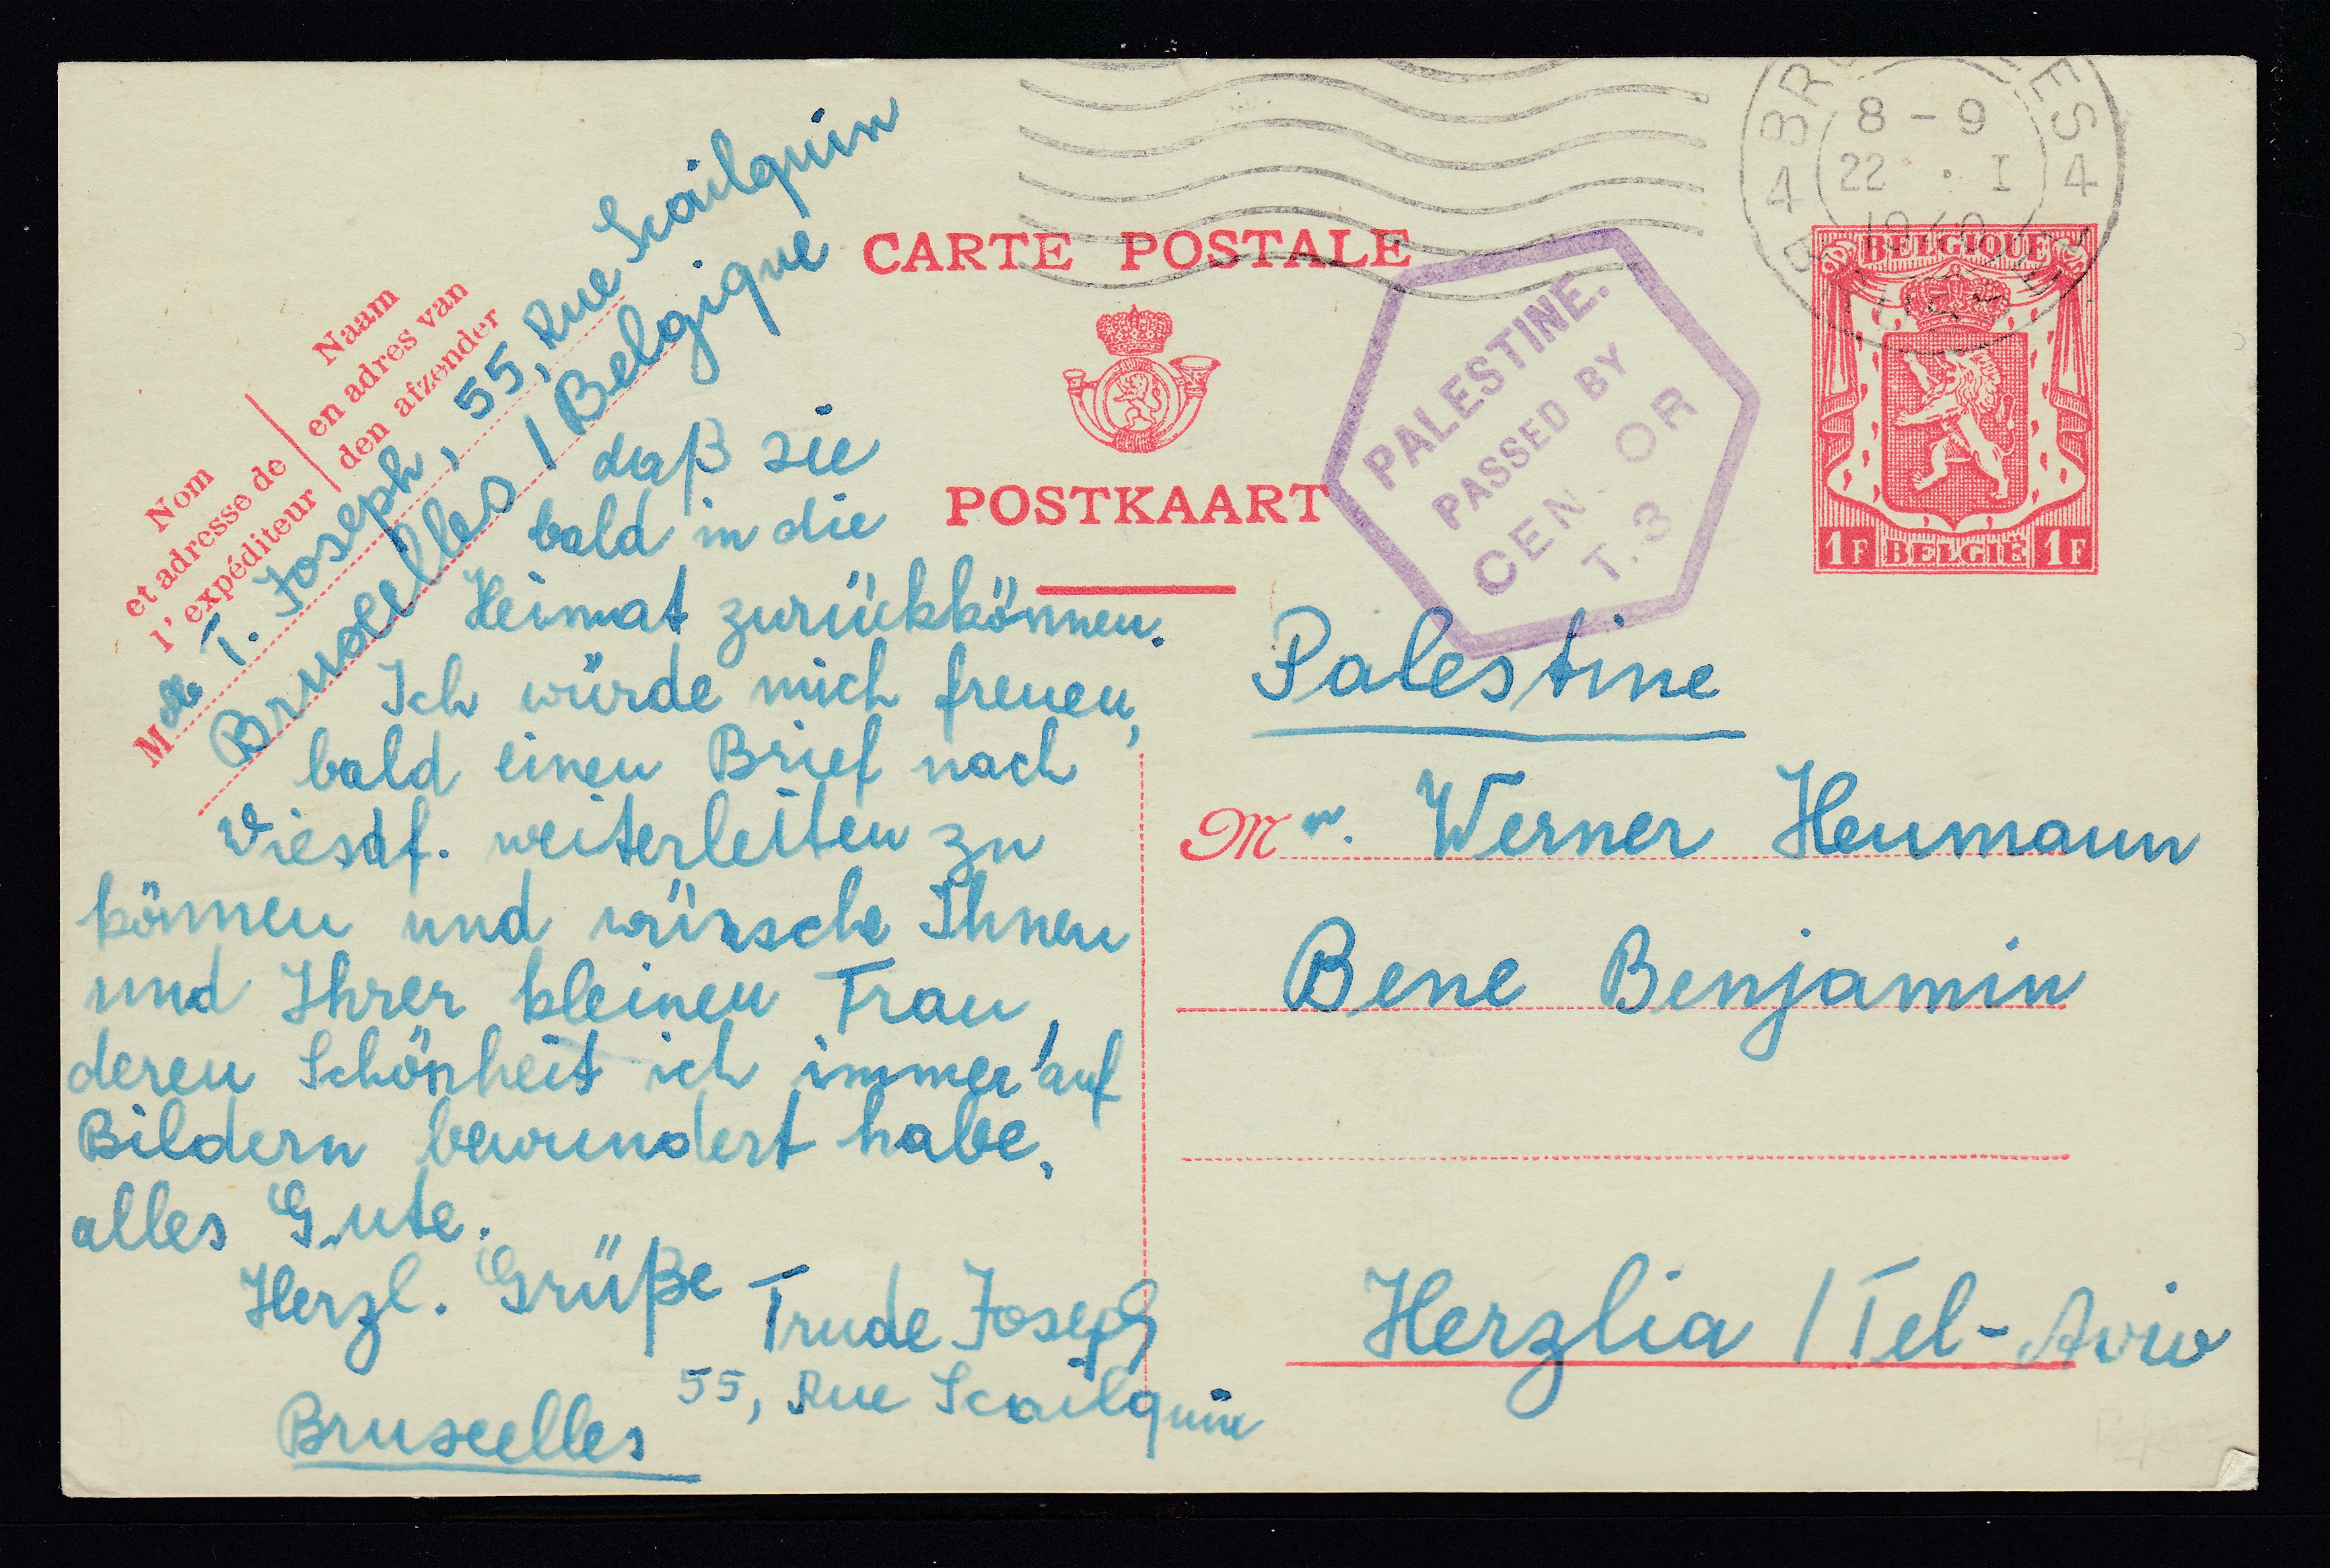 CARTE POSTALE
POSTKAART
Nom
et adresse de
l'expéditeur
Naam
en adres van
den afzender
Mdlle T. Joseph, 55, Rue Scailquin
Bruxelles / Belgique
daß sie
bald in die
Heimat zurückkönnen.
Ich würde mich freuen,
bald einen Brief nach
Viesdf. weiterleiten zu
können und wünsche Ihnen
und Ihrer kleinen Frau,
deren Schönheit ich immer auf
Bildern bewundert habe,
alles Gute.
Herzl. Grüße Trude Joseph
55, Rue Scailquin
Bruxelles
8-9
22 . I
1940
4 4
BELGIQUE
1F BELGIË 1F
PALESTINE.
PASSED BY
CEN OR
T.3
Palestine
Mr. Werner Heumann
Bene Benjamin
Herzlia / Tel-Aviv